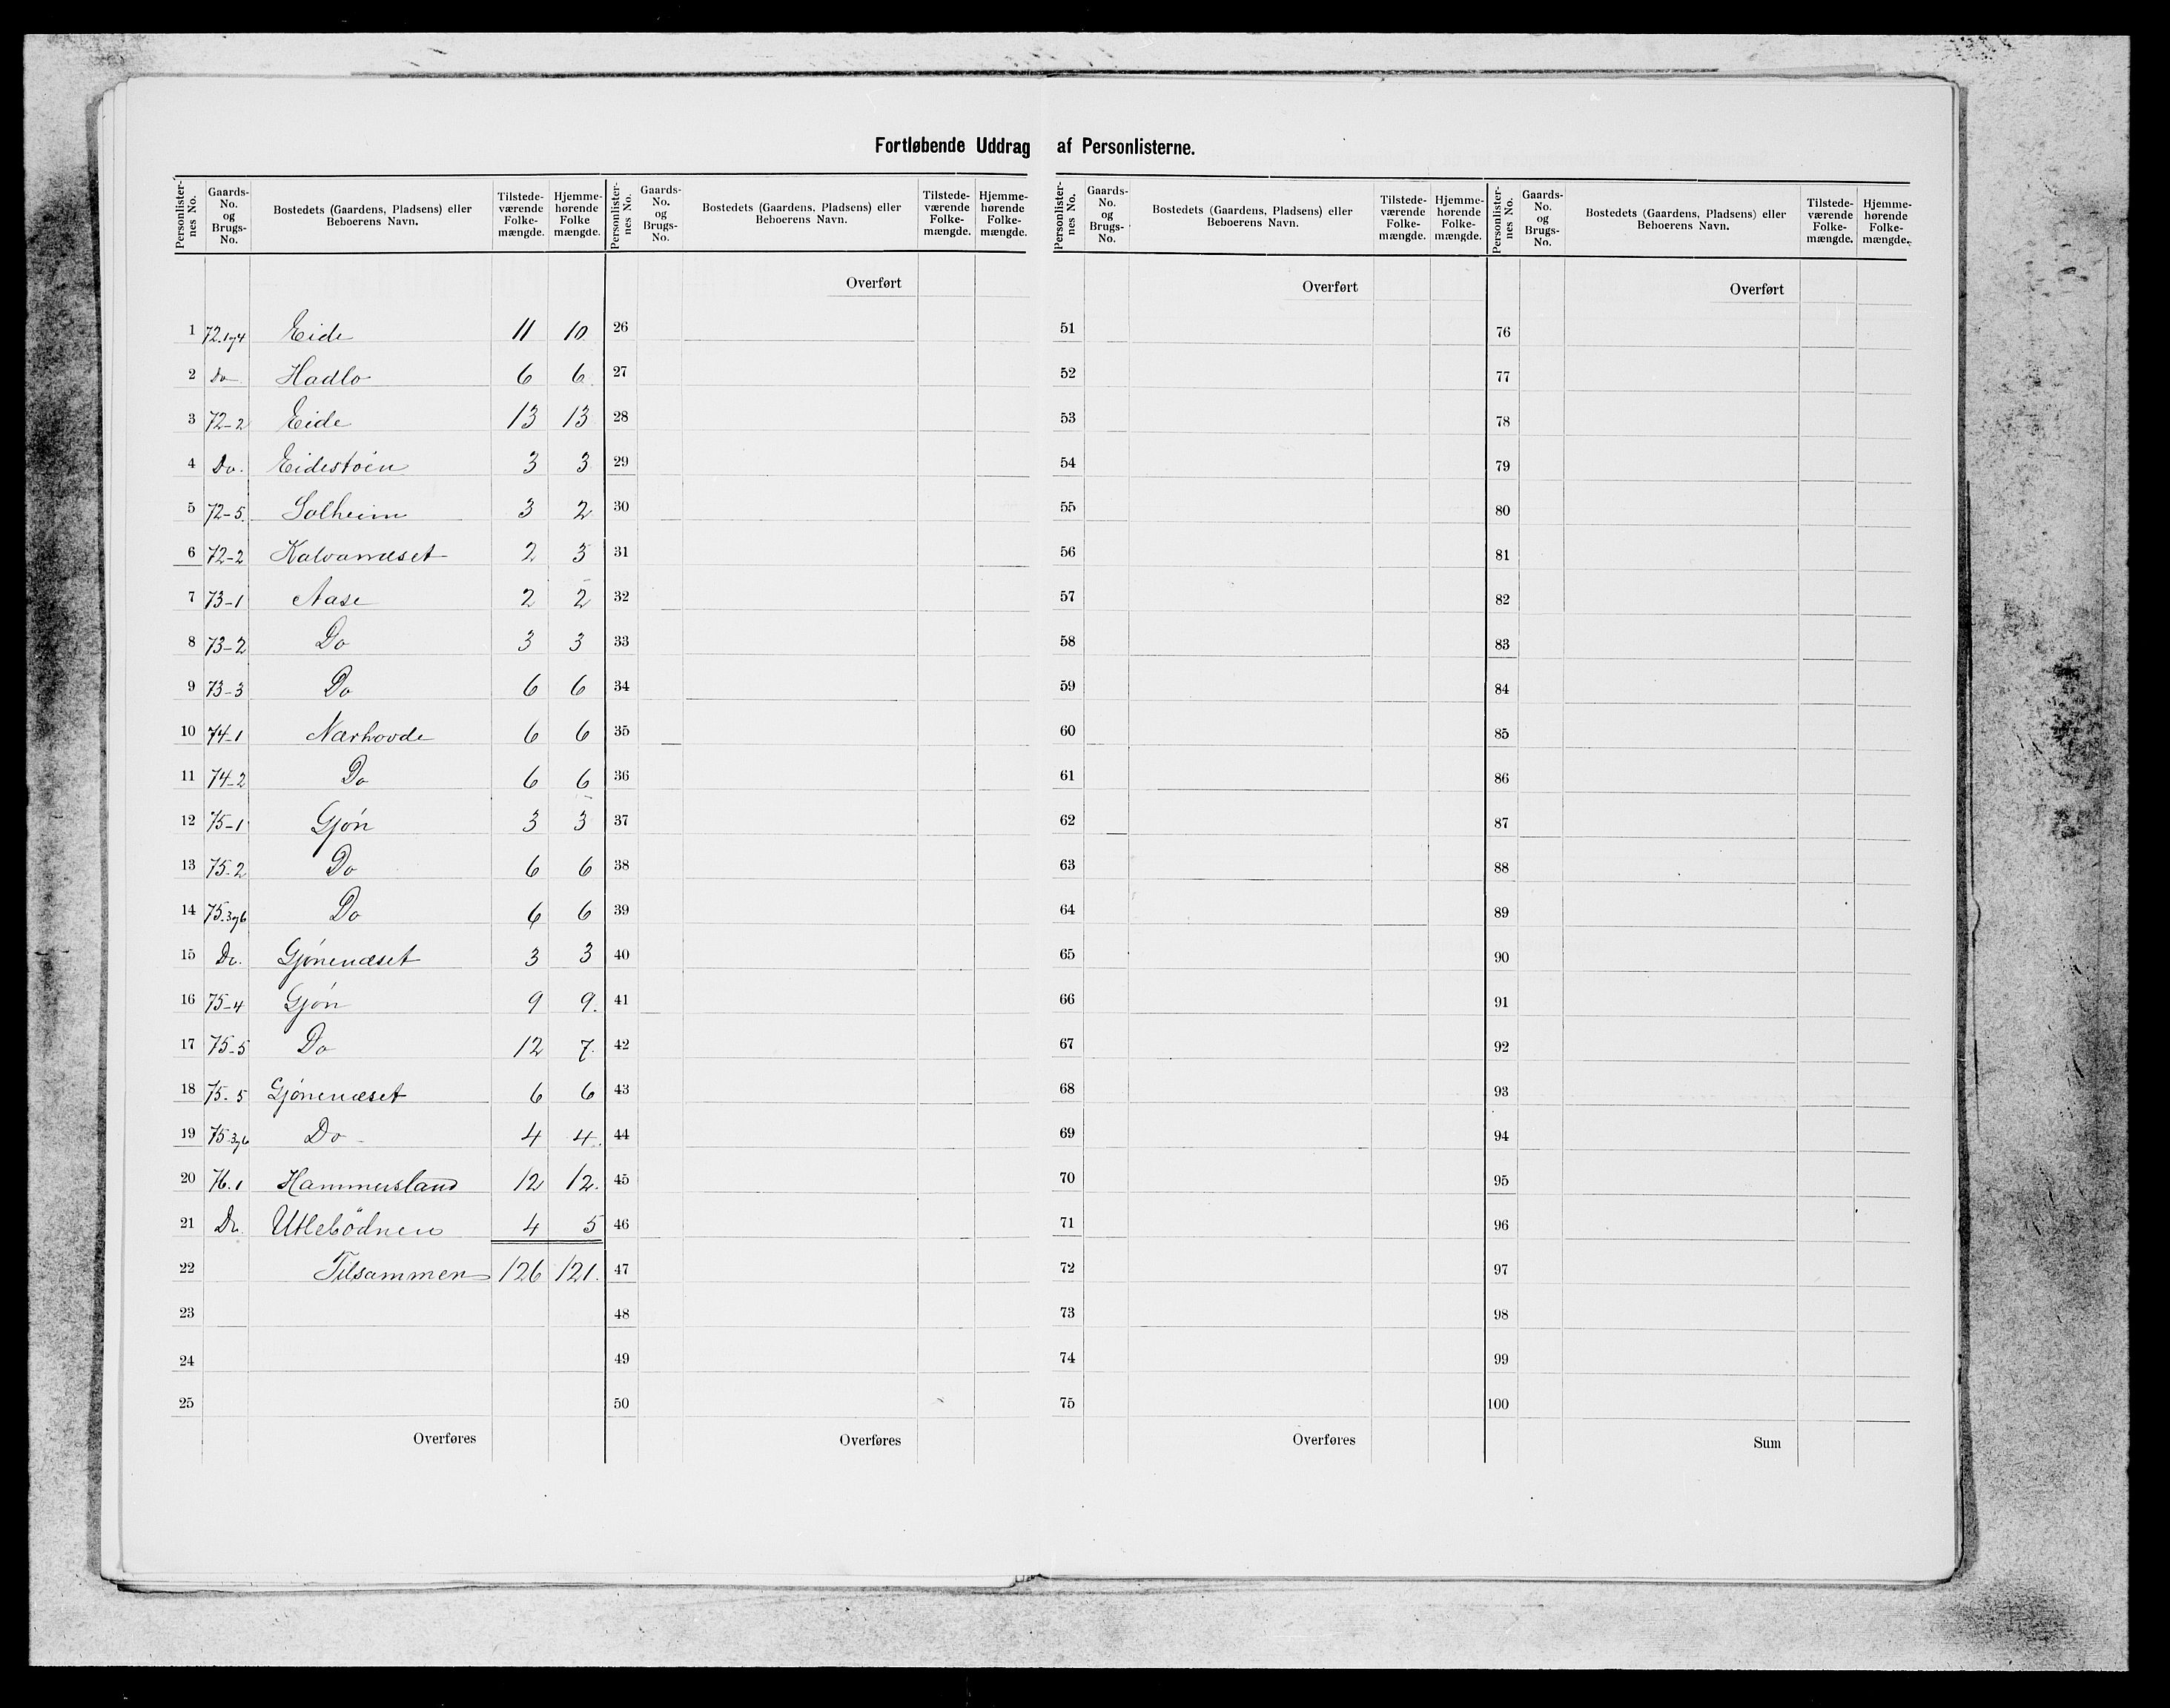 Fortløbende Uddrag af Personlisterne.
Personlister-nes No. Gaards-No. og Brugs-No. Bostedets (Gaardens, Pladsens) eller Beboerens Navn. Tilstede-værende Folke-mængde. Hjemme-hørende Folke mængde.
1 72.1og4 Eide 11 10
2 Do Hadlo 6 6
3 72-2 Eide 13 13
4 Do. Eidestøen 3 3
5 72-5. Solheim 3 2
6 72-2 Kalvanæset 2 3
7 73-1 Aase 2 2
8 73-2 Do 3 3
9 73-3 Do 6 6
10 74-1 Nærhovde 6 6
11 74-2 Do 6 6
12 75-1 Gjøn 3 3
13 75-2 Do 6 6
14 75-3og6 Do 6 6
15 Do. Gjønenæset 3 3
16 75-4 Gjøn 9 9.
17 75-5 Do 12 7.
18 75-5 Gjønenæset 6 6
19 75-3og6 Do - 4 4.
20 76.1 Hammersland 12 12.
21 Do. Utlebödnen 4 5
22 Tilsammen 126 121.
23
24
25
Overføres
Personlister-nes No. Gaards-No. og Brugs-No. Bostedets (Gaardens, Pladsens) eller Beboerens Navn. Tilstede-værende Folke-mængde. Hjemme-hørende Folke-mængde.
Overført
26
27
28
29
30
31
32
33
34
35
36
37
38
39
40
41
42
43
44
45
46
47
48
49
50
Overføres
Personlister-nes No. Gaards-No. og Brugs-No. Bostedets (Gaardens, Pladsens) eller Beboerens Navn. Tilstede-værende Folke-mængde. Hjemme-hørende Folke-mængde.
Overført
51
52
53
54
55
56
57
58
59
60
61
62
63
64
65
66
67
68
69
70
71
72
73
74
75
Overføres
Personlister-nes No. Gaards-No. og Brugs-No. Bostedets (Gaardens, Pladsens) eller Beboerens Navn. Tilstede-værende Folke-mængde. Hjemme-hørende Folke-mængde.
Overført
76
77
78
79
80
81
82
83
84
85
86
87
88
89
90
91
92
93
94
95
96
97
98
99
100
Sum